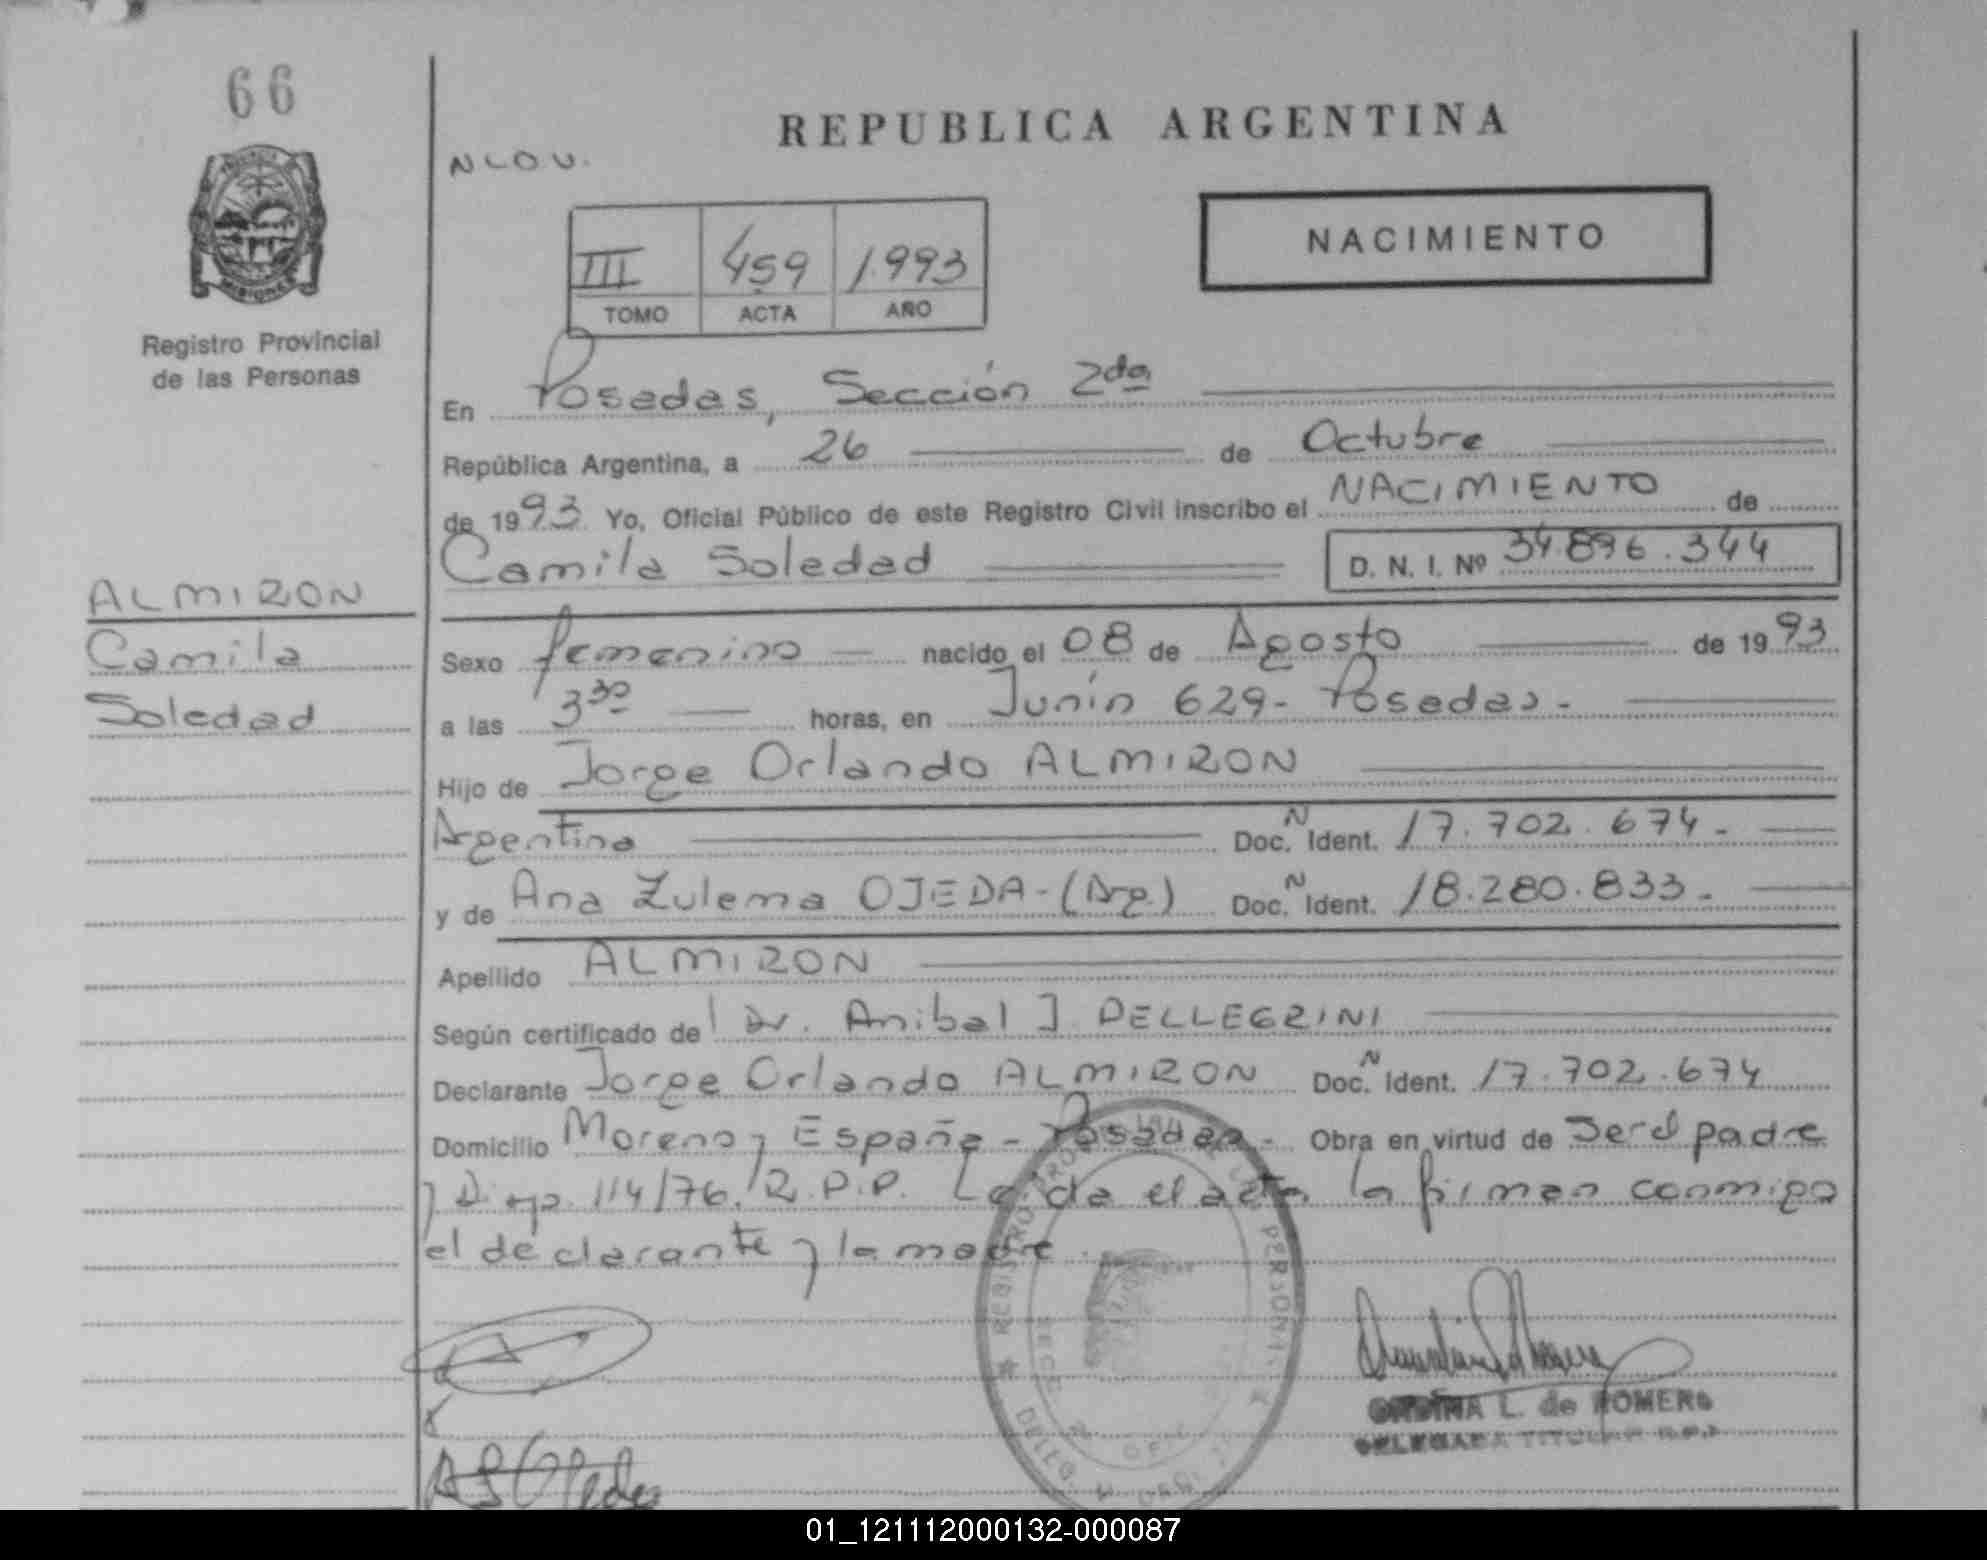 66
REPUBLICA ARGENTINA
N L O U.
PROVINCIA
MISIONES
Registro Provincial
de las Personas
III 459 1993
TOMO ACTA AÑO
NACIMIENTO
En Posadas, Sección 2da
República Argentina, a 26 de Octubre
de 1993. Yo, Oficial Público de este Registro Civil inscribo el NACIMIENTO de
Camila Soledad D. N. I. Nº 34.896.344
ALMIRON
Camila
Soledad
Sexo femenino nacido el 08 de Agosto de 1993
a las 3 30 horas, en Junín 629- Posadas.-
Hijo de Jorge Orlando ALMIRON
Argentino Doc. N Ident. 17.702.674.-
y de Ana Zulema OJEDA-(Arg.) Doc. N Ident. 18.280.833.-
Apellido ALMIRON
Según certificado de Dr. Anibal J PELLEGRINI
Declarante Jorge Orlando ALMIRON Doc. N Ident. 17.702.674
Domicilio Moreno y España - Posadas.- Obra en virtud de Ser el padre
y Disp. 114/76. R.P.P. Leída el acta la firman conmigo
el declarante y la madre.
REGISTRO PROVINCIAL DE LAS PERSONAS
A S Ojeda
L. de ROMERO
DELEGADA TITULAR R.P.P.
01_121112000132-000087